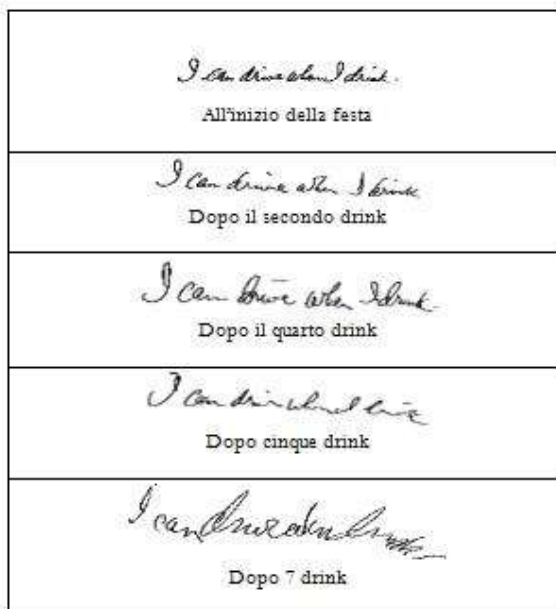 I can drive when I drink.
All'inizio della festa
I can drive when I drink
Dopo il secondo drink
I can drive when I drink.
Dopo il quarto drink
I can
Dopo cinque drink
I can
Dopo 7 drink